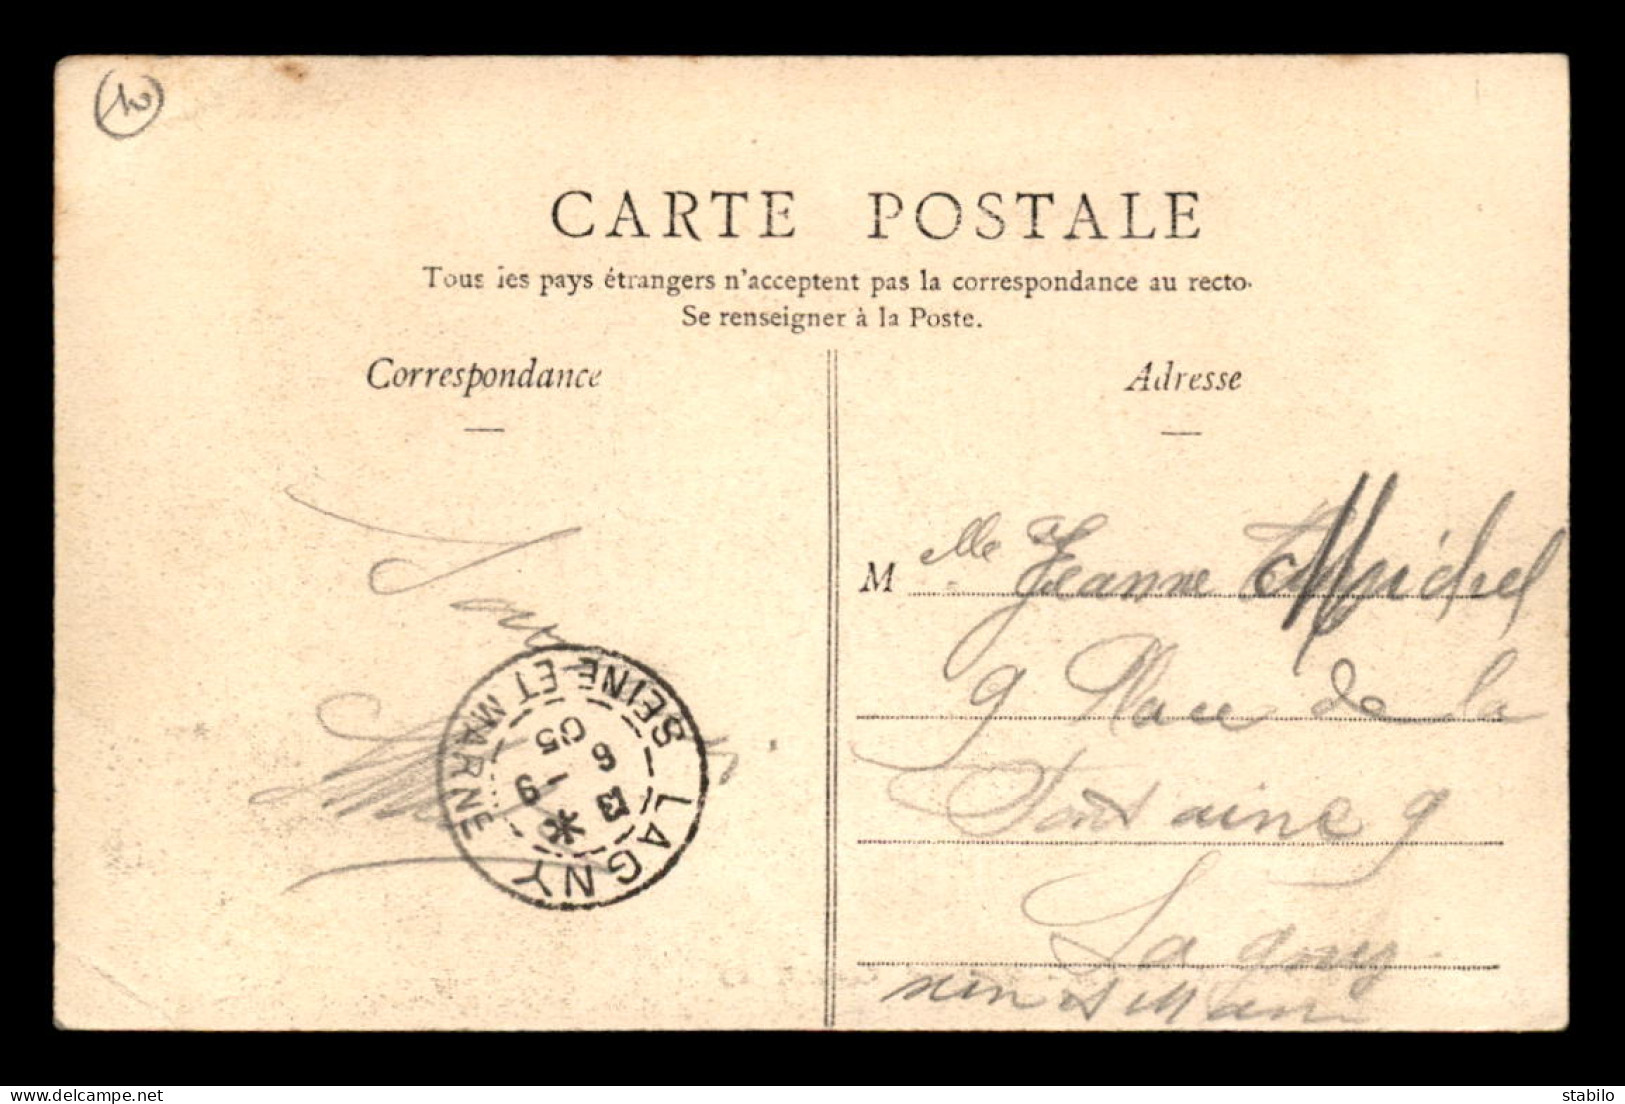 10
CARTE POSTALE
Tous les pays étrangers n'acceptent pas la correspondance au recto.
Se renseigner à la Poste.
Correspondance
Adresse
M elle Jeanne Michel
9 Place de la
Fontaine 9
Lagny
Seine et Marne
LAGNY
SEINE ET MARNE
05
delcampe.net
stabilo